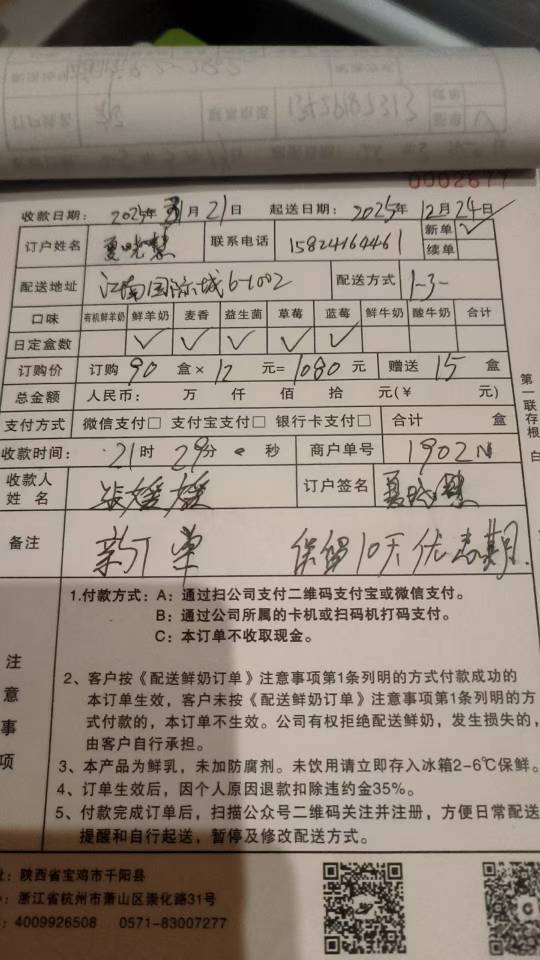 0002677
收款日期：2025年 月21日 起送日期：2025年12月24日
订户姓名 夏晓慧 联系电话 15824164461 新单 ✓
续单
配送地址 江南国际城6-1002 配送方式 1-3-
口味 有机鲜羊奶 鲜羊奶 麦香 益生菌 草莓 蓝莓 鲜牛奶 酸牛奶 合计
日定盒数 ✓ ✓ ✓ ✓ ✓
订购价 订购90盒×12元=1080元 赠送15盒
总金额 人民币： 万 仟 佰 拾 元(￥ 元)
支付方式 微信支付□ 支付宝支付□ 银行卡支付□ 合计 盒
收款时间： 21时29分 秒 商户单号 1902N
收款人姓名 张媛媛 订户签名 夏晓慧
备注 新订单 保留10天优惠期.
第一联存根 白
注意事项
1.付款方式：A：通过扫公司支付二维码支付宝或微信支付。
B：通过公司所属的卡机或扫码机打码支付。
C：本订单不收取现金。
2、客户按《配送鲜奶订单》注意事项第1条列明的方式付款成功的
本订单生效，客户未按《配送鲜奶订单》注意事项第1条列明的方
式付款的，本订单不生效。公司有权拒绝配送鲜奶，发生损失的，
由客户自行承担。
3、本产品为鲜乳，未加防腐剂。未饮用请立即存入冰箱2-6℃保鲜。
4、订单生效后，因个人原因退款扣除违约金35%。
5、付款完成订单后，扫描公众号二维码关注并注册，方便日常配送
提醒和自行起送，暂停及修改配送方式。
：陕西省宝鸡市千阳县
：浙江省杭州市萧山区崇化路31号
：4009926508 0571-83007277